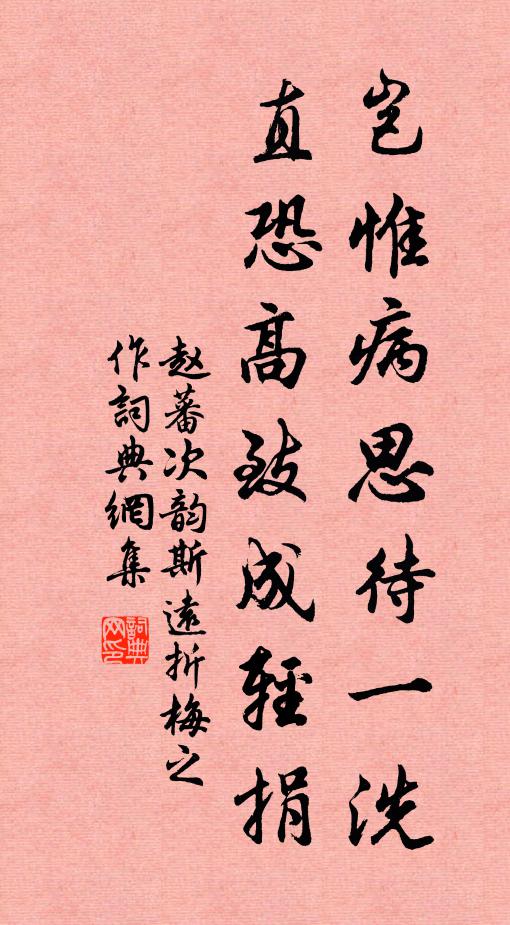 岂惟病思待一洗
直恐高致成轻捐
赵蕃次韵斯远折梅之
作詞典網集
詞典网印